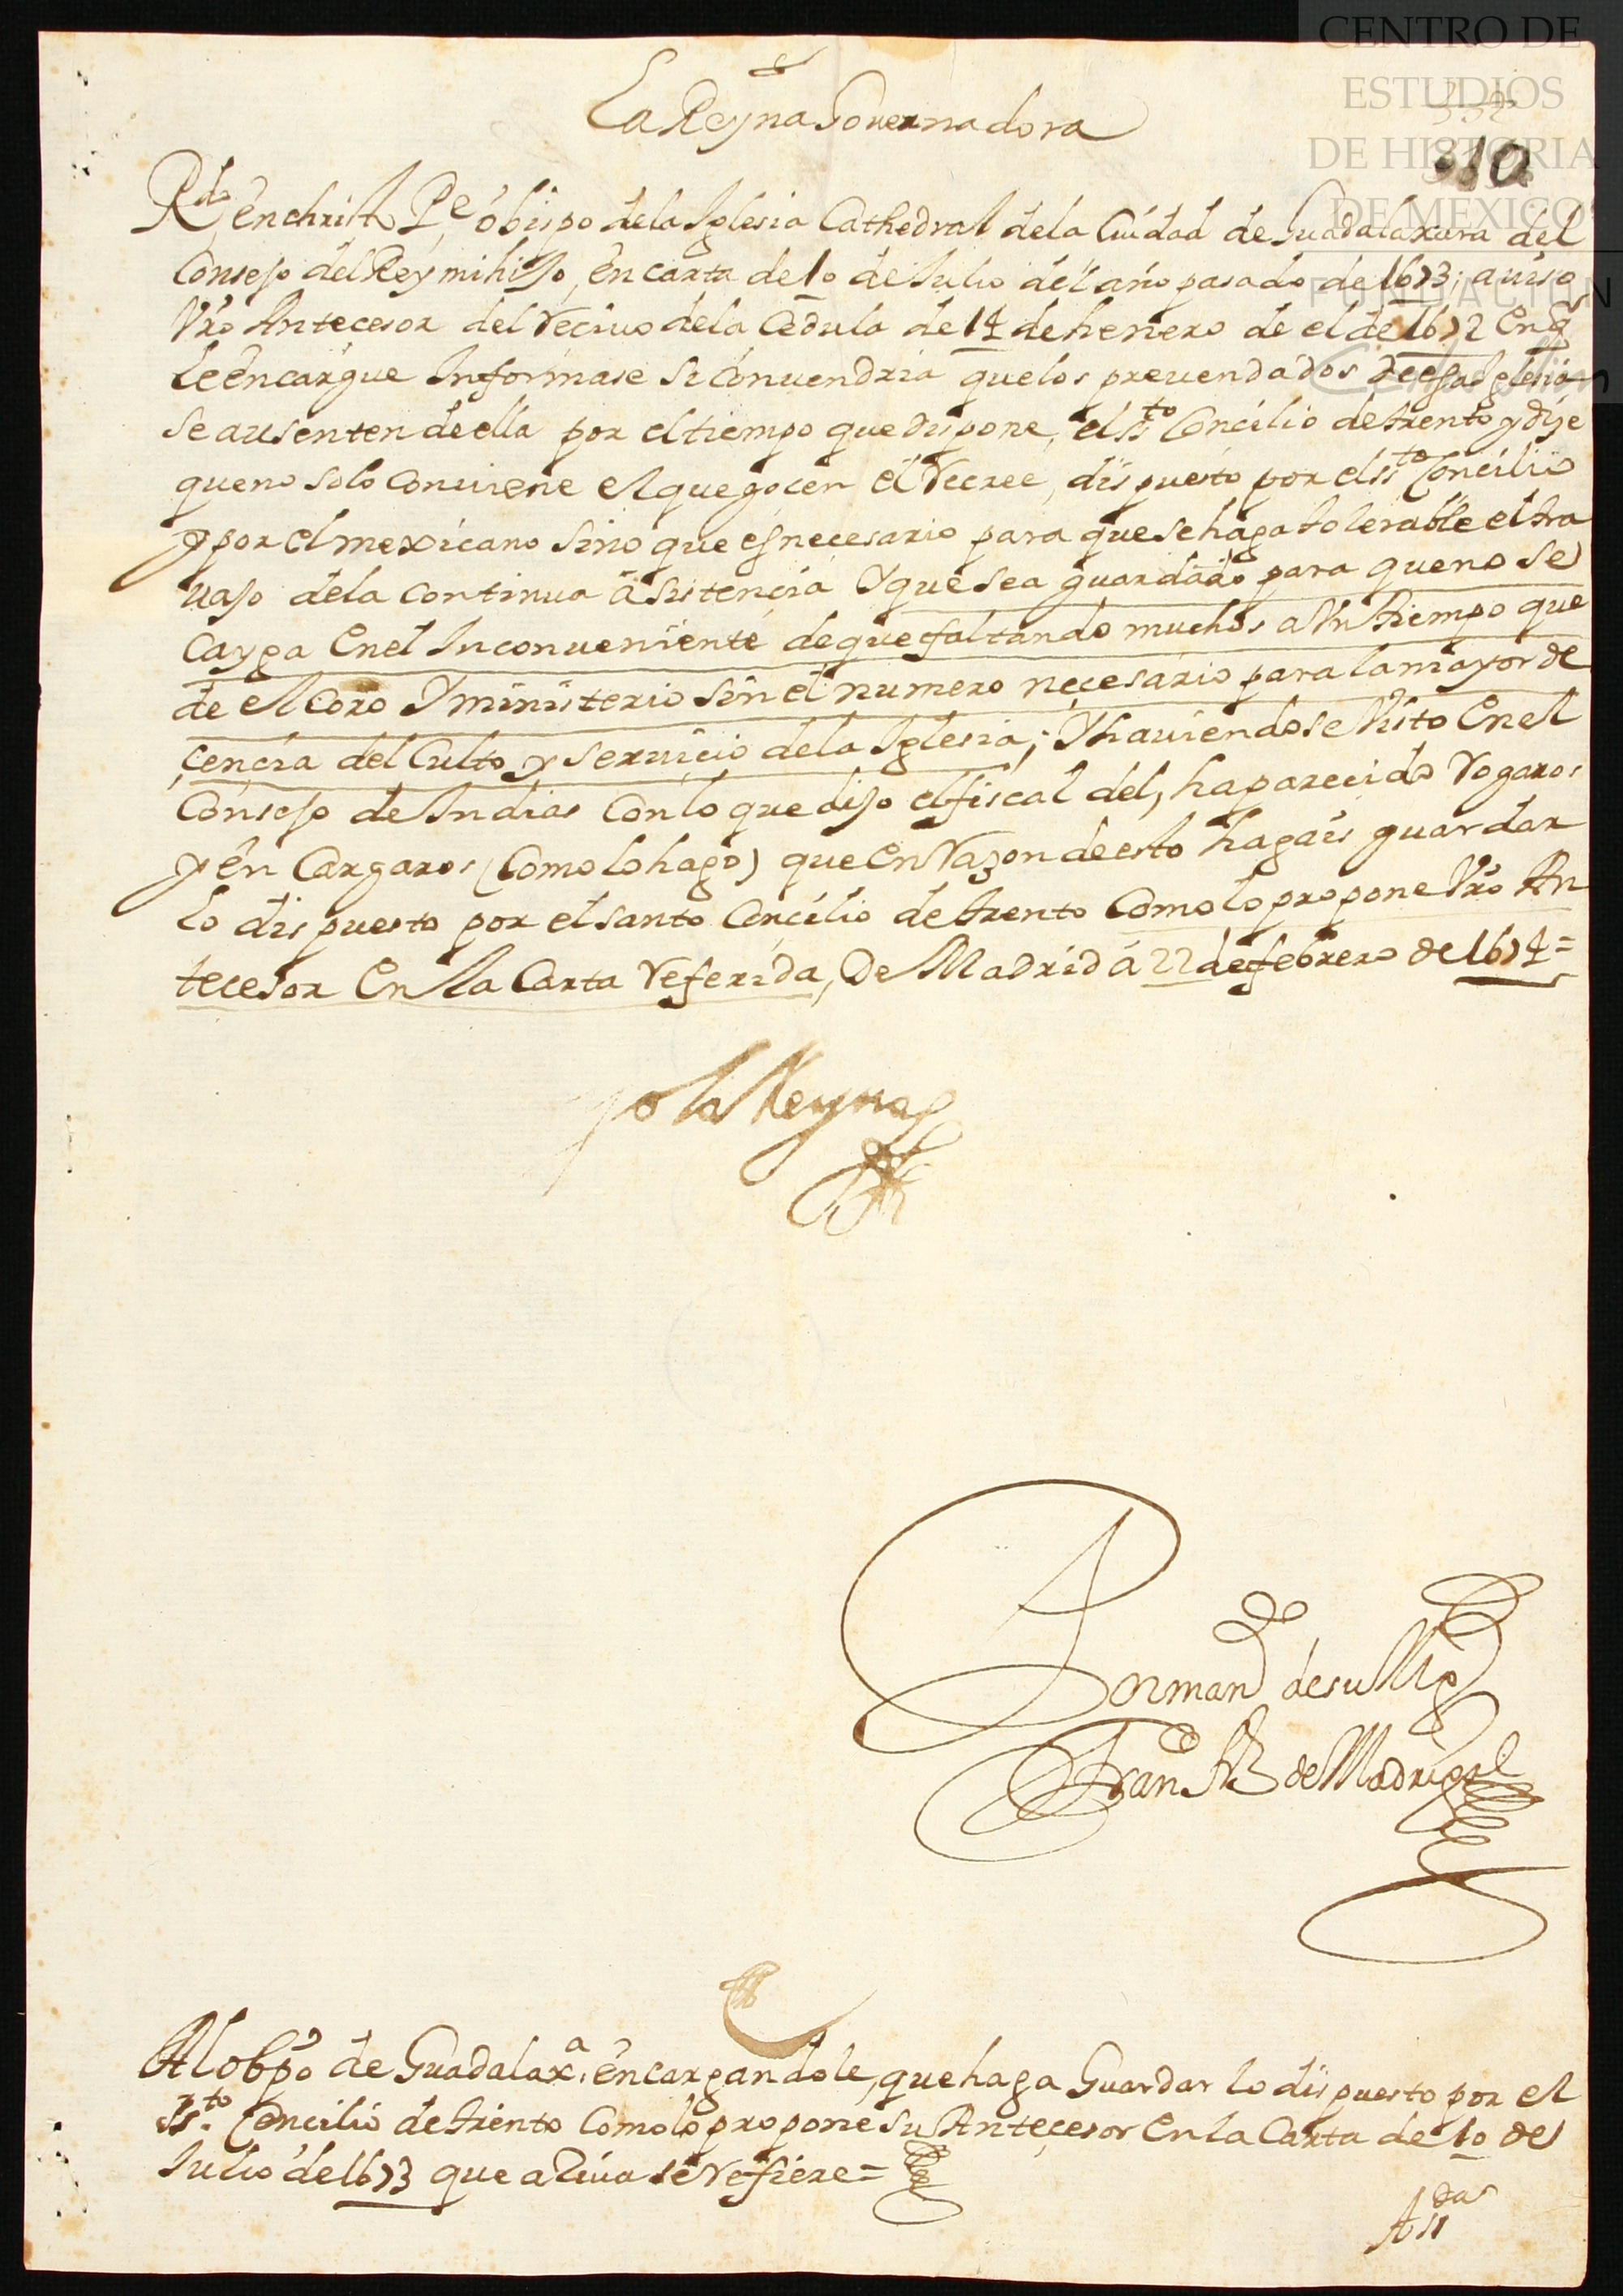 CENTRO DE
ESTUDIOS
DE HISTORIA
DE MEXICO
FUNDACION
310
La Reyna Governadora
Rdo en christo Pe obispo dela Iglesia Cathedral dela Ciudad de Guadalaxara del
Consejo del Rey mi hijo, en carta de 10 de Julio del año pasado de 1673; auiso
Vro Antecesor del reciuo dela Cedula de 14 de henero de el de 1672 En q̃
le encargue Informase si conuendria quelos preuendados de esa Iglesia
se ausenten de ella por el tiempo que dispone, el sto Concilio de trento y dije
que no solo conuiene el que gocen el recree, dispuesto por el sto Concilio
y por el mexicano sino que es necesario para que se haga tolerable el tra
uajo dela continua asistencia Y que sea guardado para que no se
Cayga En el Inconueniente de que faltando muchos a Vn tiempo que
de el Coro Y ministerio sin el numero necesario para la mayor de
cencia del Culto y seruicio dela Iglesia; Y hauiendose Visto En el
Consejo de Indias Con lo que dijo el fiscal del, ha parecido rogaros
y en Cargaros (Como lo hago) que En razon de esto hagais guardar
lo dispuesto por el santo Concilio de trento Como lo propone Vro An
tecesor En la Carta referida, De Madrid á 22 de febrero de 1674=
Yo la Reyna
Por mand de su Mg
Franco frz de Madrigal
Al obpo de Guadalaxa. encargandole, que haga Guardar lo dispuesto por el
sto. Concilio de trento Como lo propone su Antecesor En la Carta de 10 de
Julio de 1673 que aRiua se refiere=